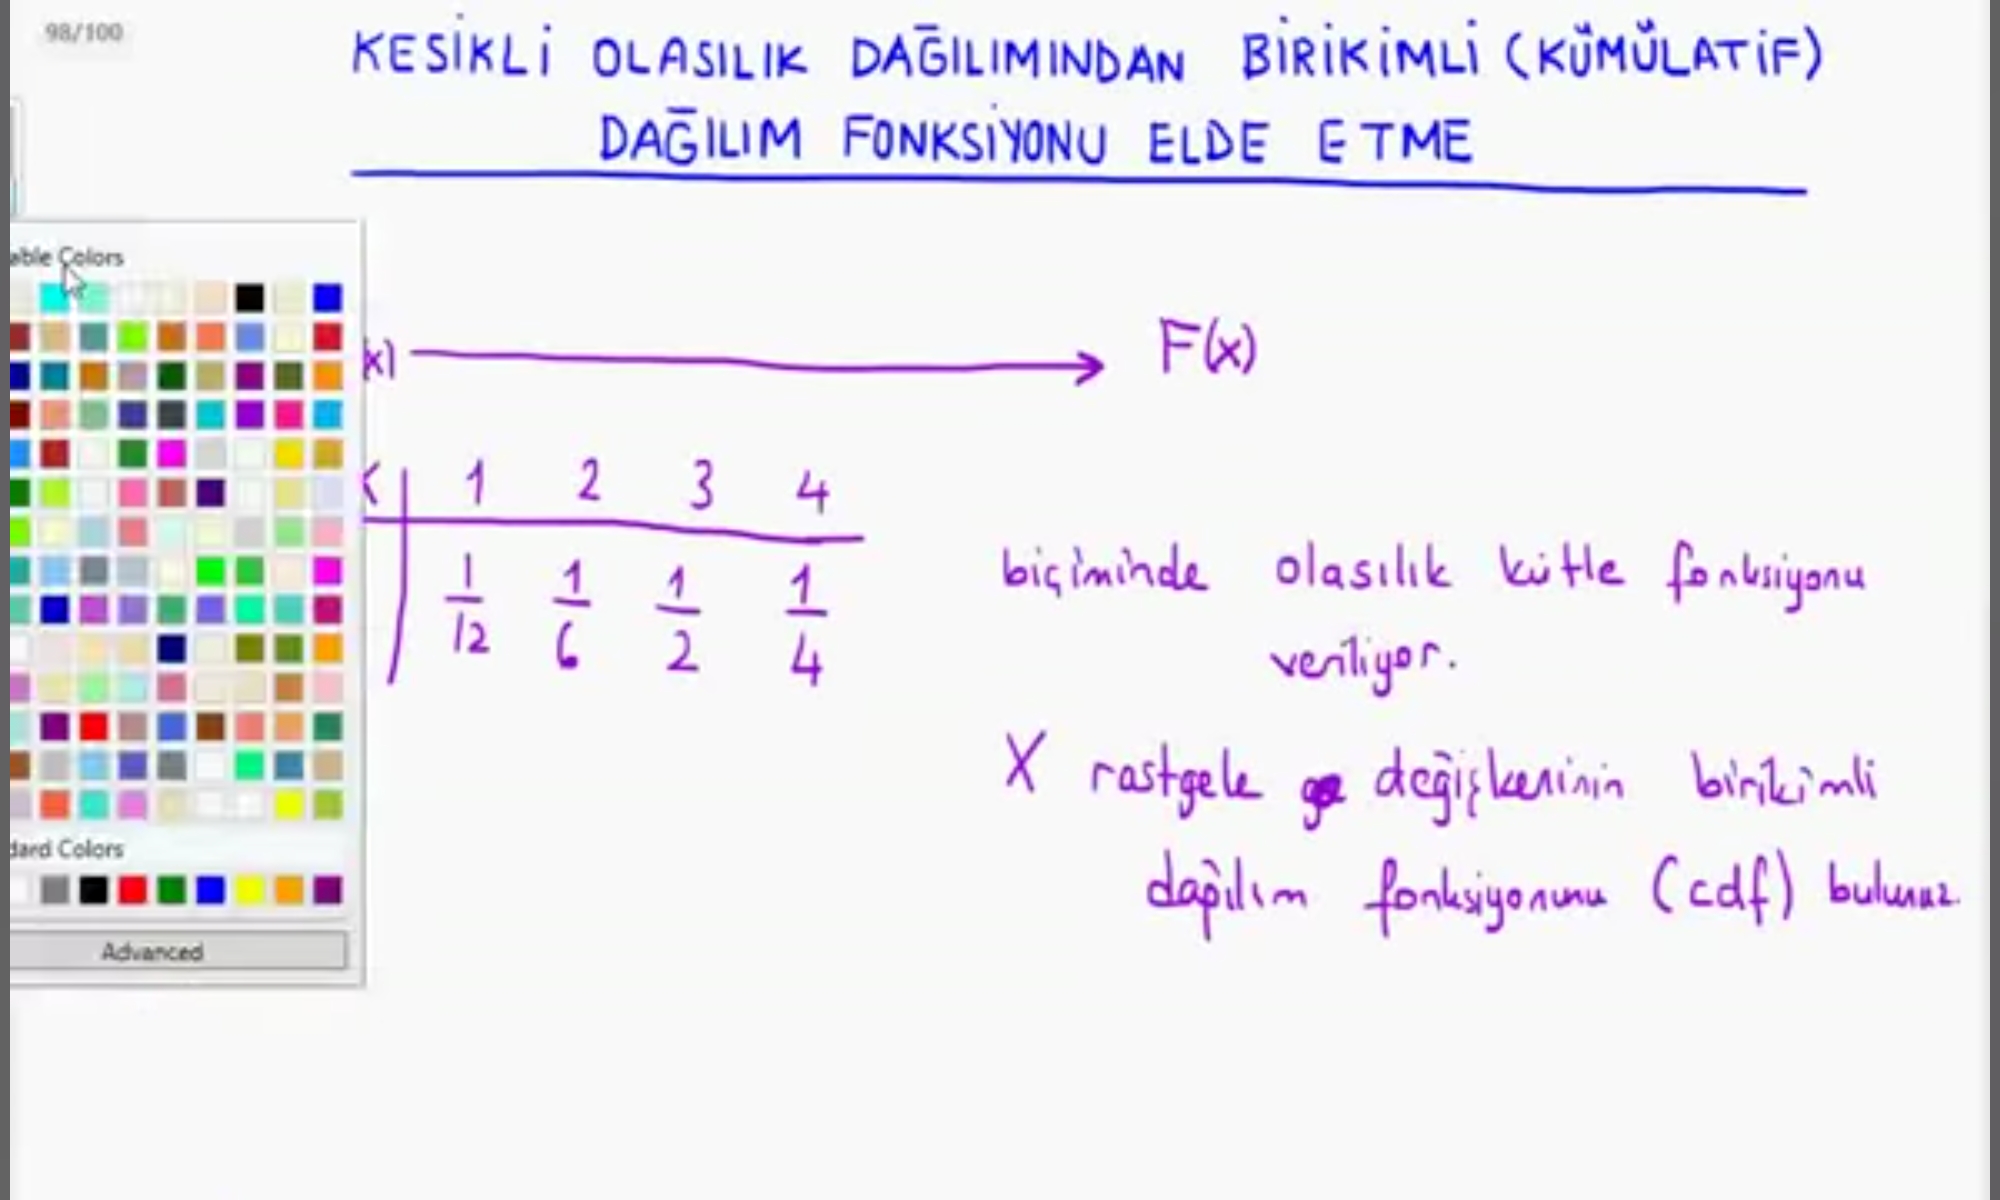 98/100
KESİKLİ OLASILIK DAĞILIMINDAN BİRİKİMLİ (KÜMÜLATİF)
DAĞILIM FONKSİYONU ELDE ETME
able Colors
x) F(x)
1 2 3 4
1/12 1/6 1/2 1/4
biçiminde olasılık kütle fonksiyonu
veriliyor.
X rastgele değişkeninin birikimli
dağılım fonksiyonunu (cdf) bulunuz.
dard Colors
Advanced